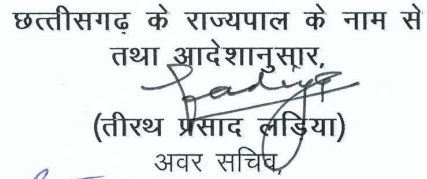 छत्तीसगढ़ के राज्यपाल के नाम से
तथा आदेशानुसार,
(तीरथ प्रसाद लड़िया)
अवर सचिव,